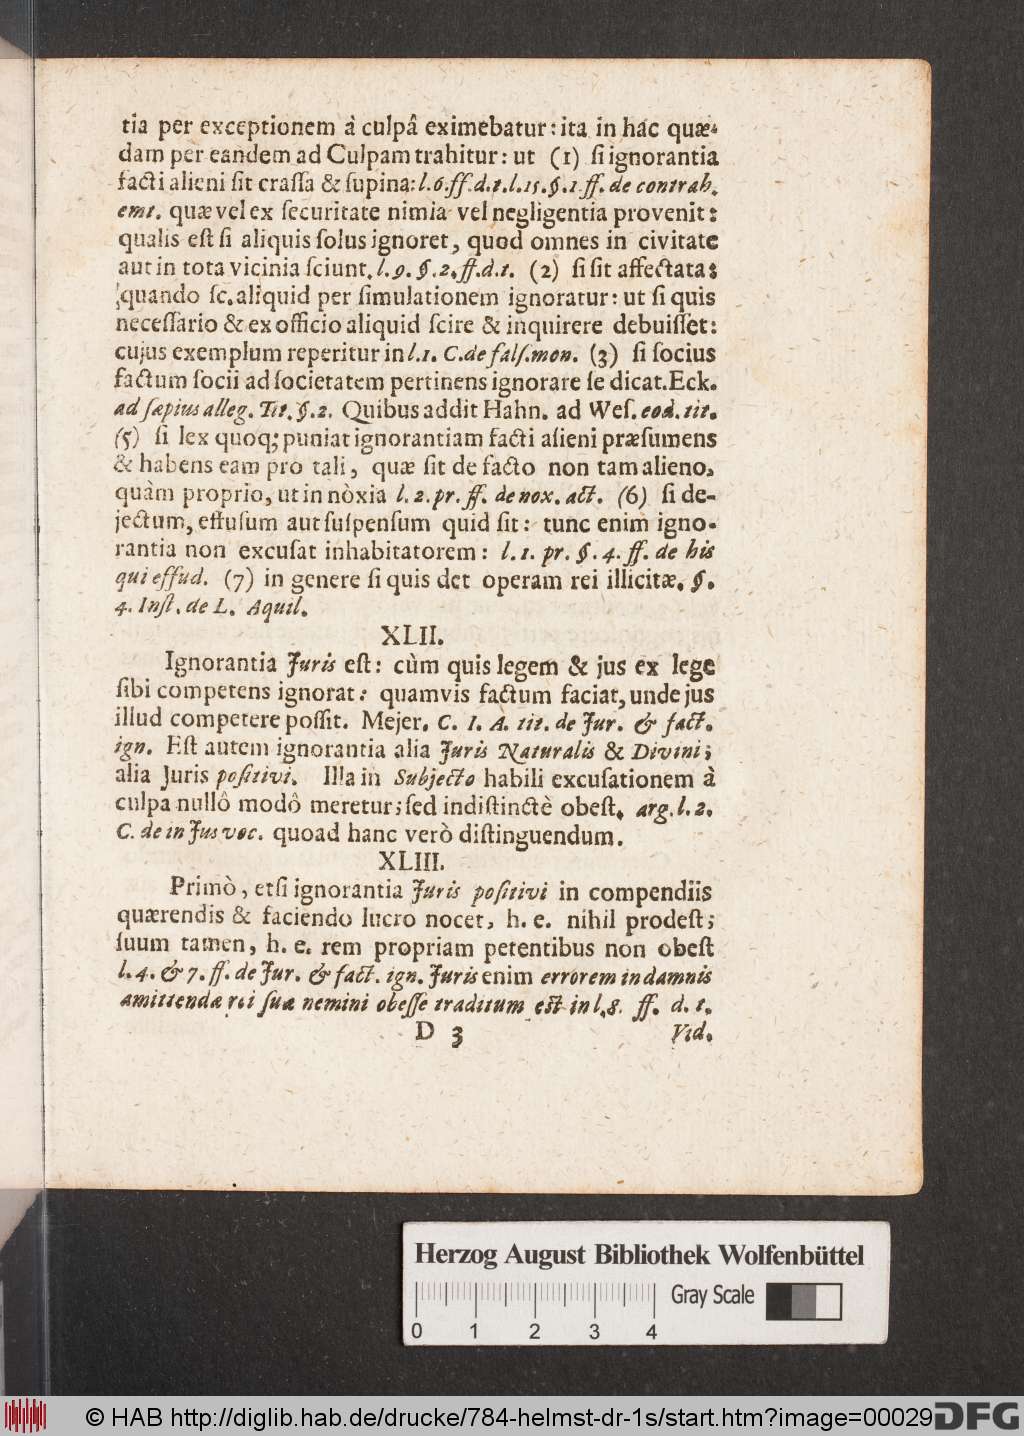 tia per exceptionem à culpâ eximebatur: ita in hac quæ-
dam per eandem ad Culpam trahitur: ut (1) ſi ignorantia
facti alieni ſit craſſa & ſupina: l. 6. ff. d. t. l. 15. §. 1. ff. de contrah.
emt. quæ vel ex ſecuritate nimia vel negligentia provenit:
qualis eſt ſi aliquis ſolus ignoret, quod omnes in civitate
aut in tota vicinia ſciunt. l. 9. §. 2. ff. d. t. (2) ſi ſit affectata:
quando ſc. aliquid per ſimulationem ignoratur: ut ſi quis
neceſſario & ex officio aliquid ſcire & inquirere debuiſſet:
cujus exemplum reperitur in l. 1. C. de falſ. mon. (3) ſi ſocius
factum ſocii ad ſocietatem pertinens ignorare ſe dicat. Eck.
ad ſæpius alleg. Tit. §. 2. Quibus addit Hahn. ad Weſ. eod. tit.
(5) ſi lex quoq; puniat ignorantiam facti alieni præſumens
& habens eam pro tali, quæ ſit de facto non tam alieno,
quàm proprio, ut in nòxia l. 2. pr. ff. de nox. act. (6) ſi de-
jectum, effuſum aut ſuſpenſum quid ſit: tunc enim igno-
rantia non excuſat inhabitatorem: l. 1. pr. §. 4. ff. de his
qui effud. (7) in genere ſi quis det operam rei illicitæ. §.
4. Inſt. de L. Aquil.
XLII.
Ignorantia Juris eſt: cùm quis legem & jus ex lege
ſibi competens ignorat: quamvis factum faciat, unde jus
illud competere poſſit. Mejer. C. I. A. tit. de Jur. & fact.
ign. Eſt autem ignorantia alia Juris Naturalis & Divini;
alia Juris poſitivi. Illa in Subjecto habili excuſationem à
culpa nullô modô meretur; ſed indiſtinctè obeſt. arg. l. 2.
C. de in Jus voc. quoad hanc verò diſtinguendum.
XLIII.
Primò, etſi ignorantia Juris poſitivi in compendiis
quærendis & faciendo lucro nocet, h. e. nihil prodeſt;
ſuum tamen, h. e. rem propriam petentibus non obeſt
l. 4. & 7. ff. de Jur. & fact. ign. Juris enim errorem in damnis
amittendæ rei ſuæ nemini obeſſe traditum eſt in l. 8. ff. d. t.
D 3 Vid.
Herzog August Bibliothek Wolfenbüttel
Gray Scale
0 1 2 3 4
© HAB http://diglib.hab.de/drucke/784-helmst-dr-1s/start.htm?image=00029
DFG